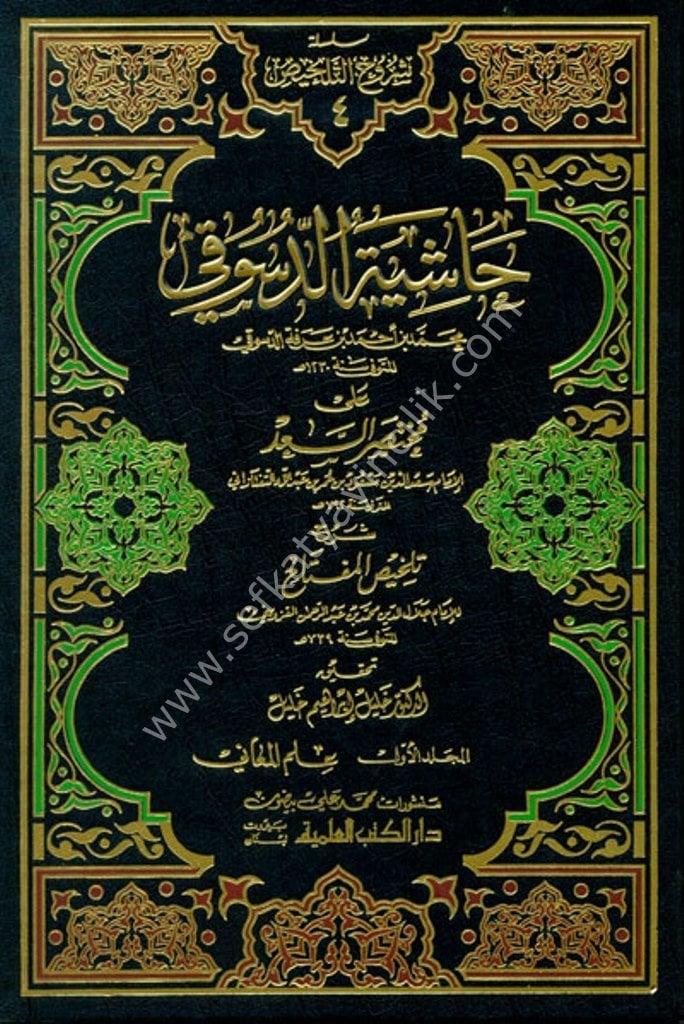 سلسلة
شروح التلخيص
٤
حاشية الدسوقي
محمد بن أحمد بن عرفة الدسوقي
المتوفى سنة ١٢٣٠هـ
على
مختصر السعد
الإمام سعد الدين مسعود بن عمر بن عبد الله التفتازاني
المتوفى سنة ٧٩٢هـ
شرح
تلخيص المفتاح
للإمام جلال الدين محمد بن عبد الرحمن القزويني
المتوفى سنة ٧٣٩هـ
تحقيق
الدكتور خليل إبراهيم خليل
المجلد الأول علم المعاني
منشورات محمد علي بيضون
دار الكتب العلمية بيروت لبنان
www.sefkatyayincilik.com